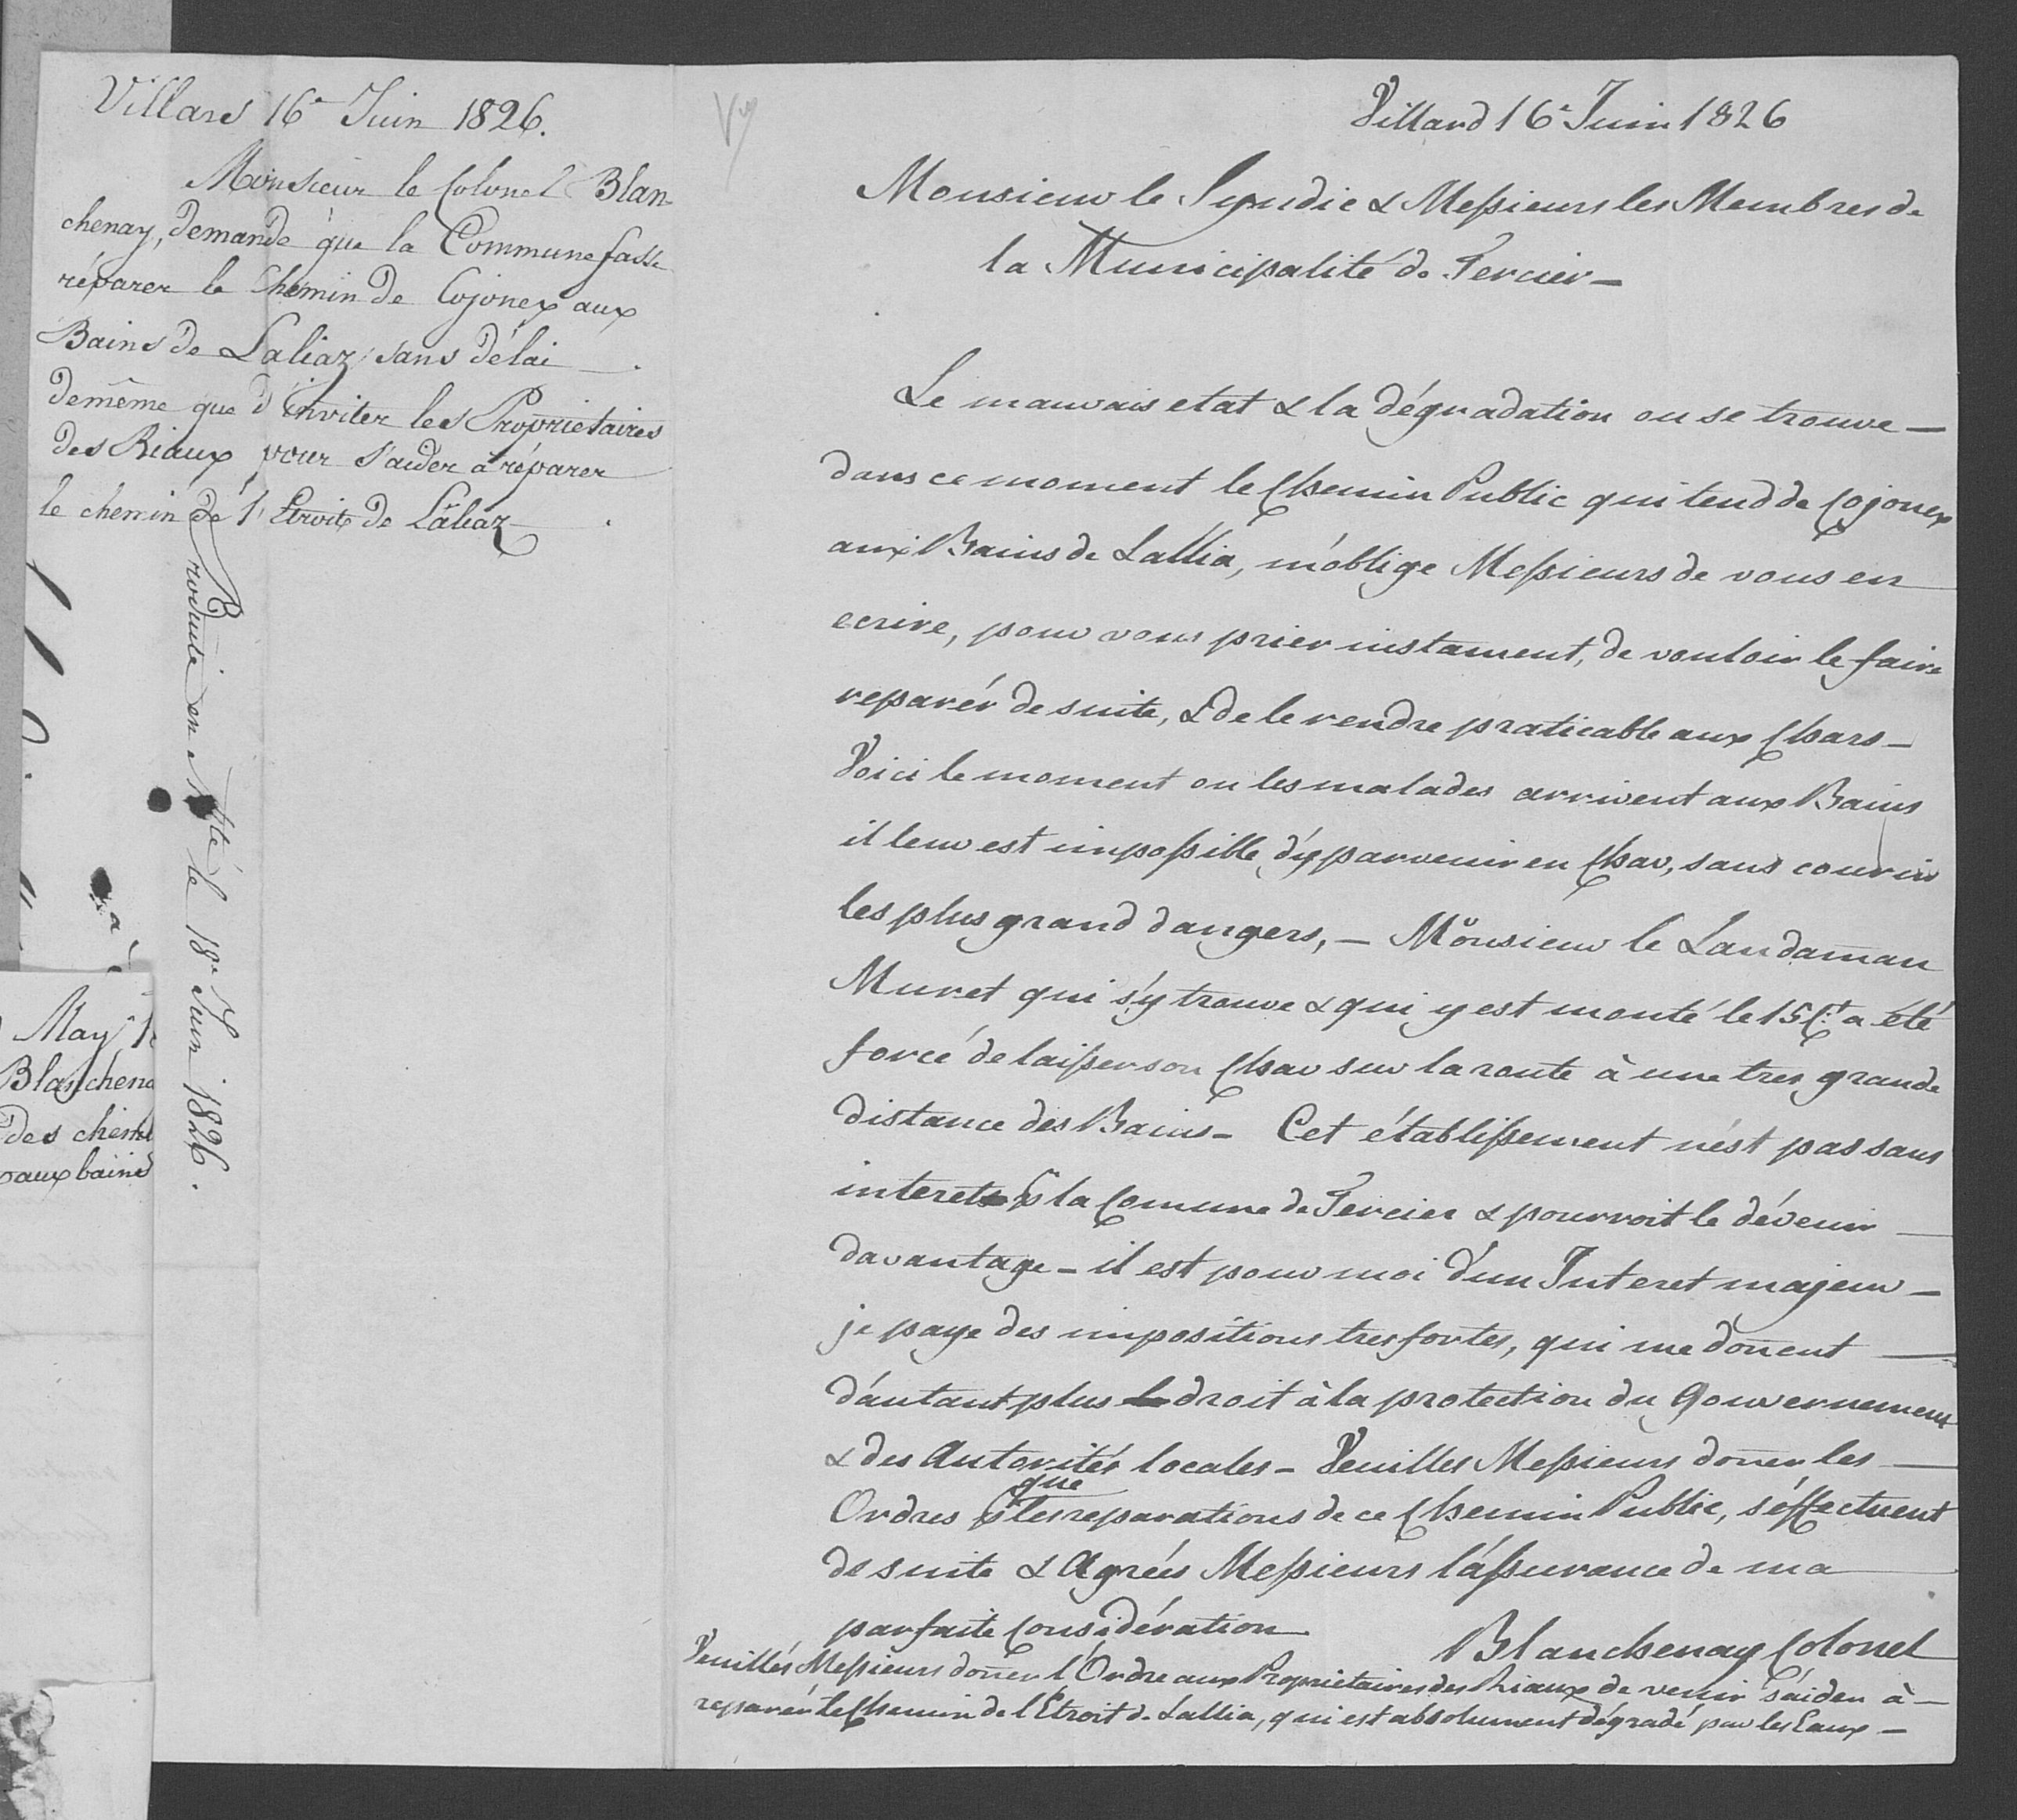 Villars 16e Juin 1826.
Monsieur le Colonel Blan-
chenay, demande que la Commune fasse
réparer le Chemin de Cojonex aux
Bains de Laliaz sans délai.
demême que d'inviter les Proprietaires
des Riaux pour s'aider à réparer
le chemin de l'Etroit de Laliaz.
Produite en Mlté le 18e Juin 1826.
May
Blanchena
des chem
aux bains
Villard 16e Juin 1826
Monsieur le Syndic & Messieurs les Membres de
la Municipalité de Fercier —
Le mauvais etat & la dégradation ou se trouve —
dans ce moment le Chemin Public qui tend de Cojonex
aux Bains de Lallia, m'oblige Messieurs de vous en
ecrire, pour vous prier instament, de vouloir le faire
reparér de suite, & de le rendre praticable aux Chars —
Voici le moment ou les malades arrivent aux Bains
il leur est impossible d'y parvenir en Char, sans courir
les plus grand dangers, — Monsieur le Landaman
Muret qui s'y trouve & qui y est monté le 15 Ct a été
forcé de laisser son Char sur la route à une tres grande
distance des Bains — Cet établissement n'est pas sans
interet pr la Comune de Fercier & pourroit le dévenir —
davantage — il est pour moi d'un Interet majeur —
je paye des impositions tres fortes, qui me donent —
d'autant plus droit à la protection du Gouvernement
& des Autorités locales — Veuilles Messieurs doner les —
Ordres pr que les reparations de ce Chemin Public, s'éffectuent
de suite & Agréés Messieurs l'assurance de ma
parfaite Considération
Blanchenay Colonel
Veuillés Messieurs doner l'Ordre aux Proprietaires des Riaux de venir s'aider à —
reparér le Chemin de l'Etroit de Lallia, qui est absolument dégradé par les Eaux —